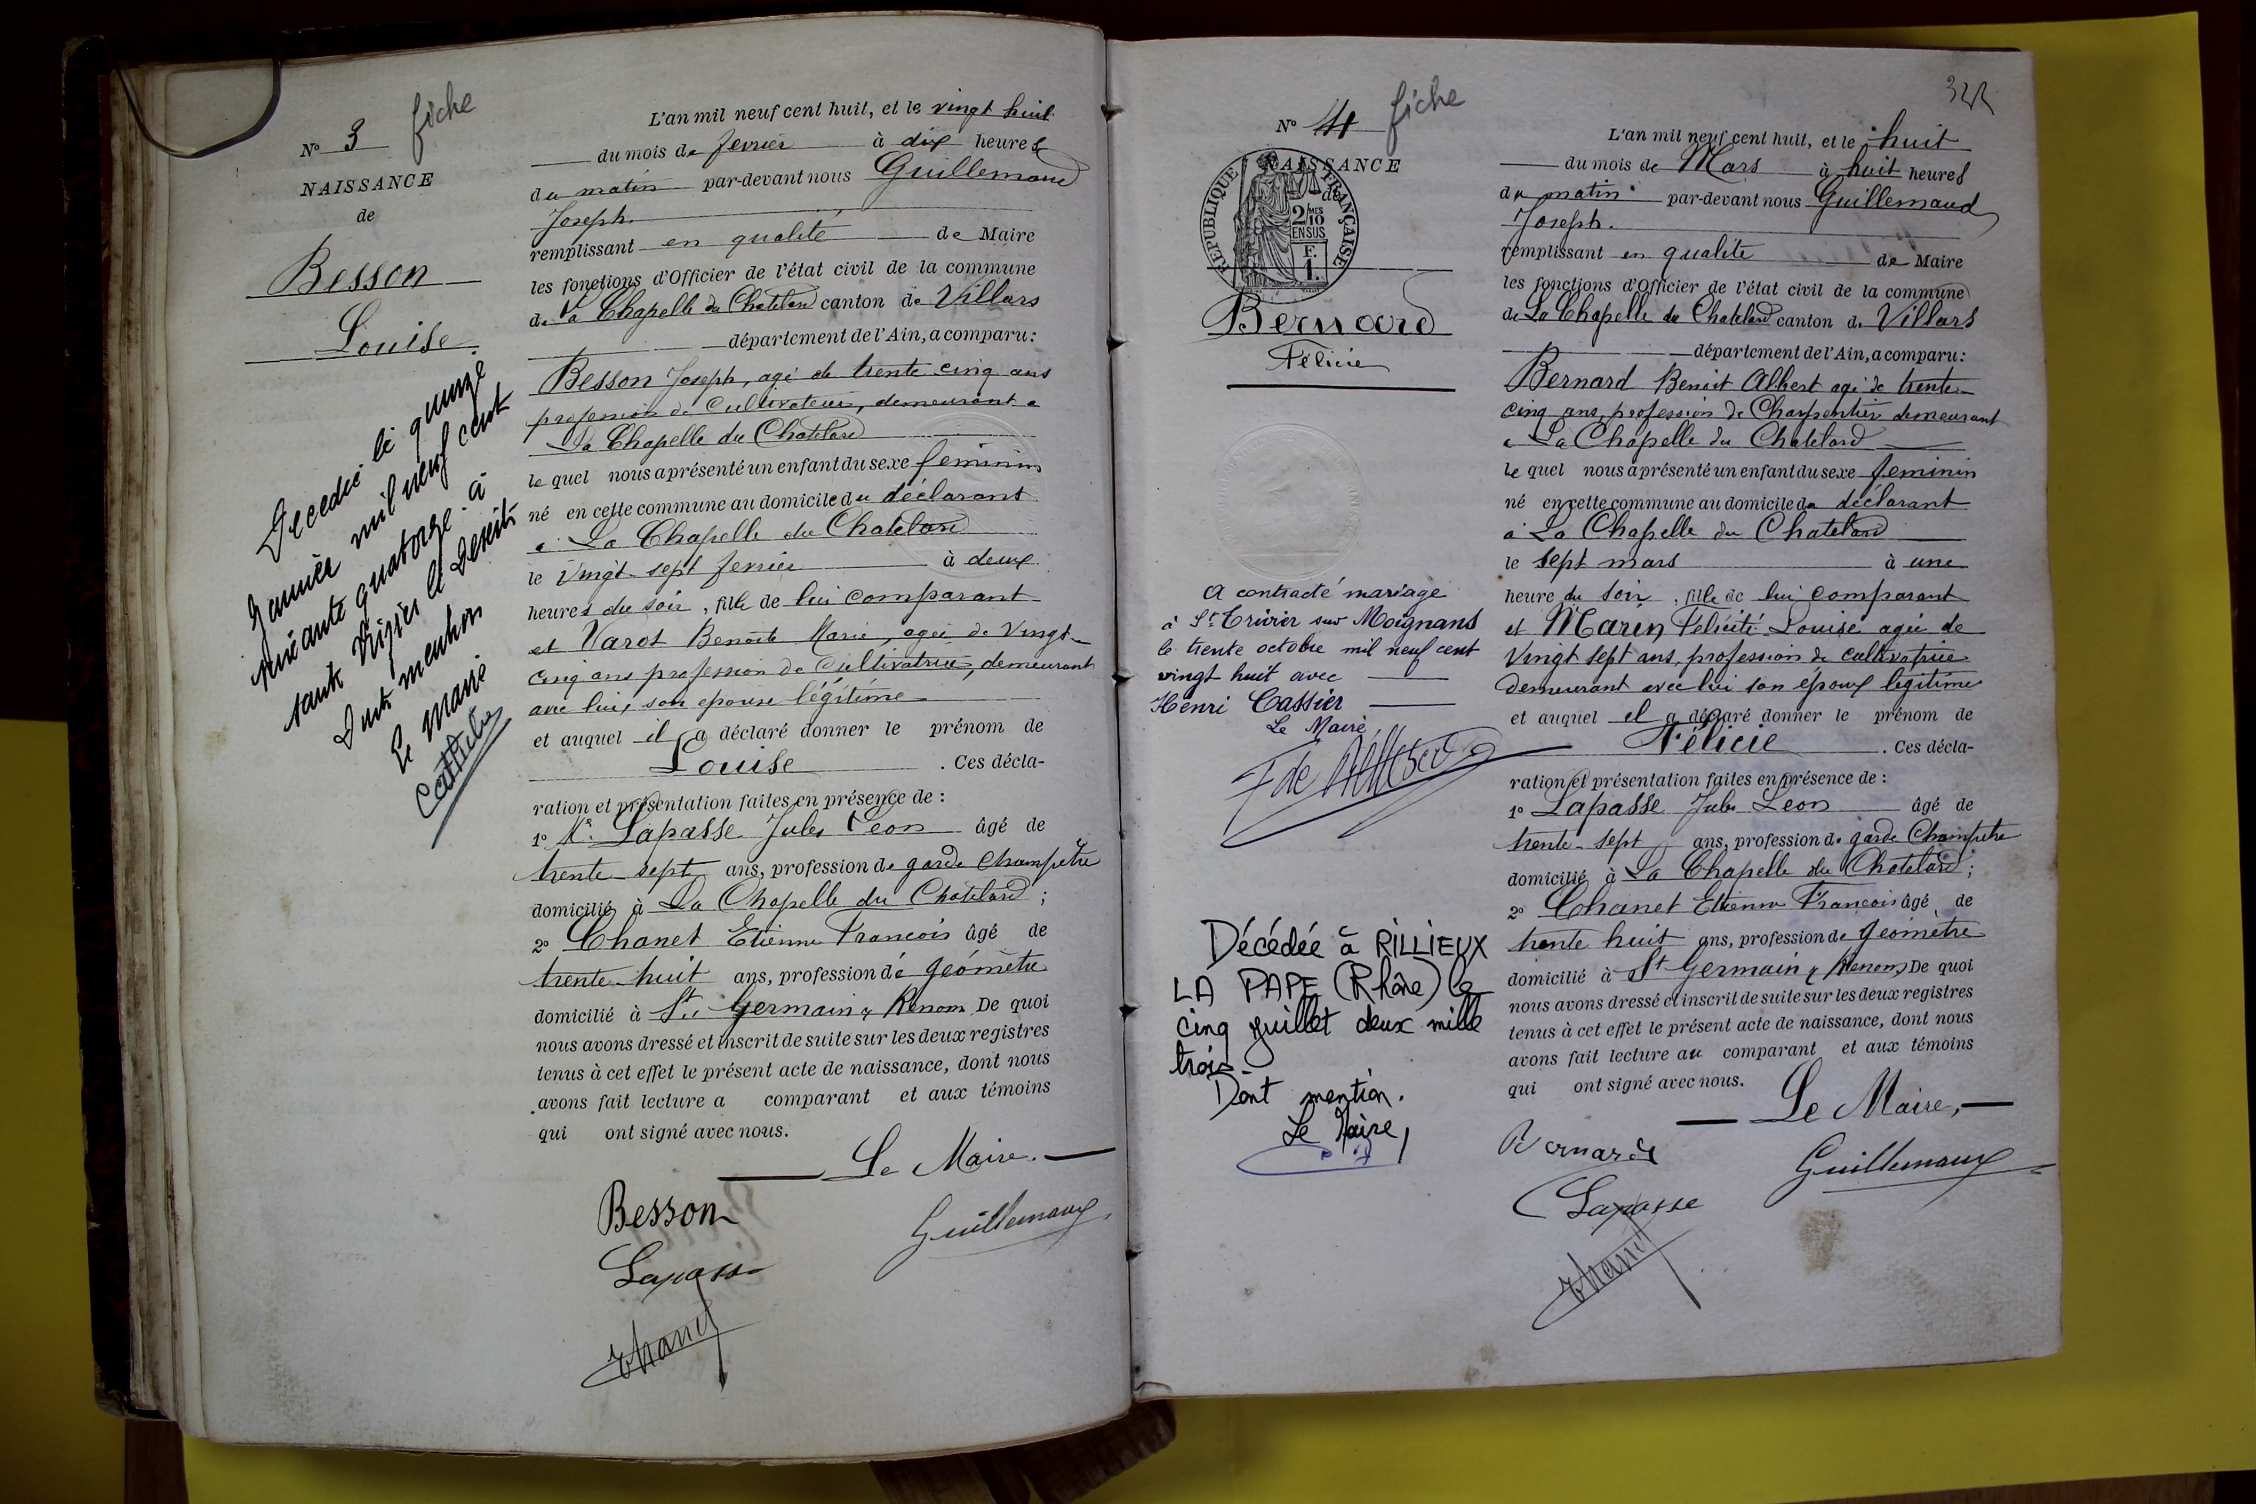 N° 3 fiche
NAISSANCE
de
Besson
Louise.
Décédée le quinze
Janvier mil neuf cent
soixante quatorze à
Dont mention
Le Maire
L'an mil neuf cent huit, et le vingt huit
du mois de fevrier à dix heures
du matin par-devant nous Guillemaud
Joseph.
remplissant en qualité de Maire
les fonctions d'Officier de l'état civil de la commune
de La Chapelle du Chatelard canton de Villars
département de l'Ain, a comparu:
Besson Joseph, agé de trente cinq ans
profession de Cultivateur, demeurant a
La Chapelle du Chatelard
le quel nous a présenté un enfant du sexe feminin
né en cette commune au domicile du déclarant
à La Chapelle du Chatelard
le Vingt sept fevrier à deux
heures du soir, fille de lui comparant
et Varot Benoite Marie, agée de Vingt-
cinq ans profession de Cultivatrice, demeurant
avec lui, son epouse légitime
et auquel il a déclaré donner le prénom de
Louise . Ces décla-
ration et présentation faites en présence de :
1° Mr. Lapasse Jules Leon âgé de
trente sept ans, profession de garde Champêtre
domicilié à La Chapelle du Chatelard ;
2° Chanet Etienne Francois âgé de
trente-huit ans, profession de Géomètre
domicilié à St. Germain s/ Renom De quoi
nous avons dressé et inscrit de suite sur les deux registres
tenus à cet effet le présent acte de naissance, dont nous
avons fait lecture a comparant et aux témoins
qui ont signé avec nous.
Le Maire.
Besson
Guillemaud
Lapasse
Chanet
324
N° 4 fiche
NAISSANCE
de
RÉPUBLIQUE FRANÇAISE
2/10 MES
EN SUS
F.
1.
Bernard
Félicie
A contracté mariage
à St Trivier sur Moignans
le trente octobre mil neuf cent
vingt huit avec
Henri Cassier
Le Maire
Décédée à RILLIEUX
LA PAPE (Rhône) le
cinq juillet deux mille
trois
Dont mention.
Le Maire,
L'an mil neuf cent huit, et le huit
du mois de Mars à huit heures
du matin par-devant nous Guillemaud
Joseph.
remplissant en qualité de Maire
les fonctions d'Officier de l'état civil de la commune
de La Chapelle du Chatelard canton de Villars
département de l'Ain, a comparu:
Bernard Benoit Albert agé de trente-
cinq ans, profession de Charpentier demeurant
a La Chapelle du Chatelard
le quel nous a présenté un enfant du sexe feminin
né en cette commune au domicile du déclarant
à La Chapelle du Chatelard
le sept mars à une
heure du soir, fille de lui comparant
et Marin Félicité Louise agée de
Vingt sept ans, profession de cultivatrice
demeurant avec lui son épouse légitime
et auquel il a déclaré donner le prénom de
Félicie . Ces décla-
ration et présentation faites en présence de :
1° Lapasse Jules Leon âgé de
trente-sept ans, profession de garde Champêtre
domicilié à La Chapelle du Chatelard ;
2° Chanet Etienne Francois âgé de
trente huit ans, profession de Géomètre
domicilié à St Germain s/ Renom De quoi
nous avons dressé et inscrit de suite sur les deux registres
tenus à cet effet le présent acte de naissance, dont nous
avons fait lecture au comparant et aux témoins
qui ont signé avec nous.
Le Maire,
Bernard
Guillemaud
Lapasse
Chanet